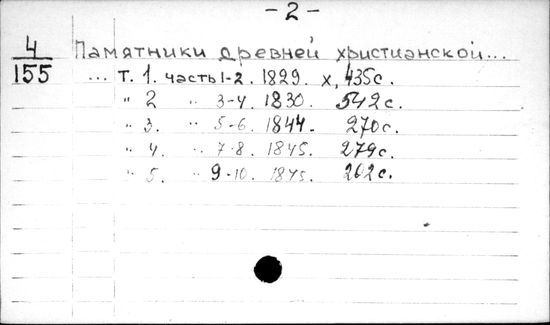 - 2 -
4
155
Памятники древней христианской...
... Т. 1. часть 1-2. 1829. X, 435с.
" 2 " 3-4. 1830. 542с.
" 3. " 5-6. 1844. 270с.
" 4. " 7-8. 1845. 279с.
" 5. " 9-10. 1845. 262с.